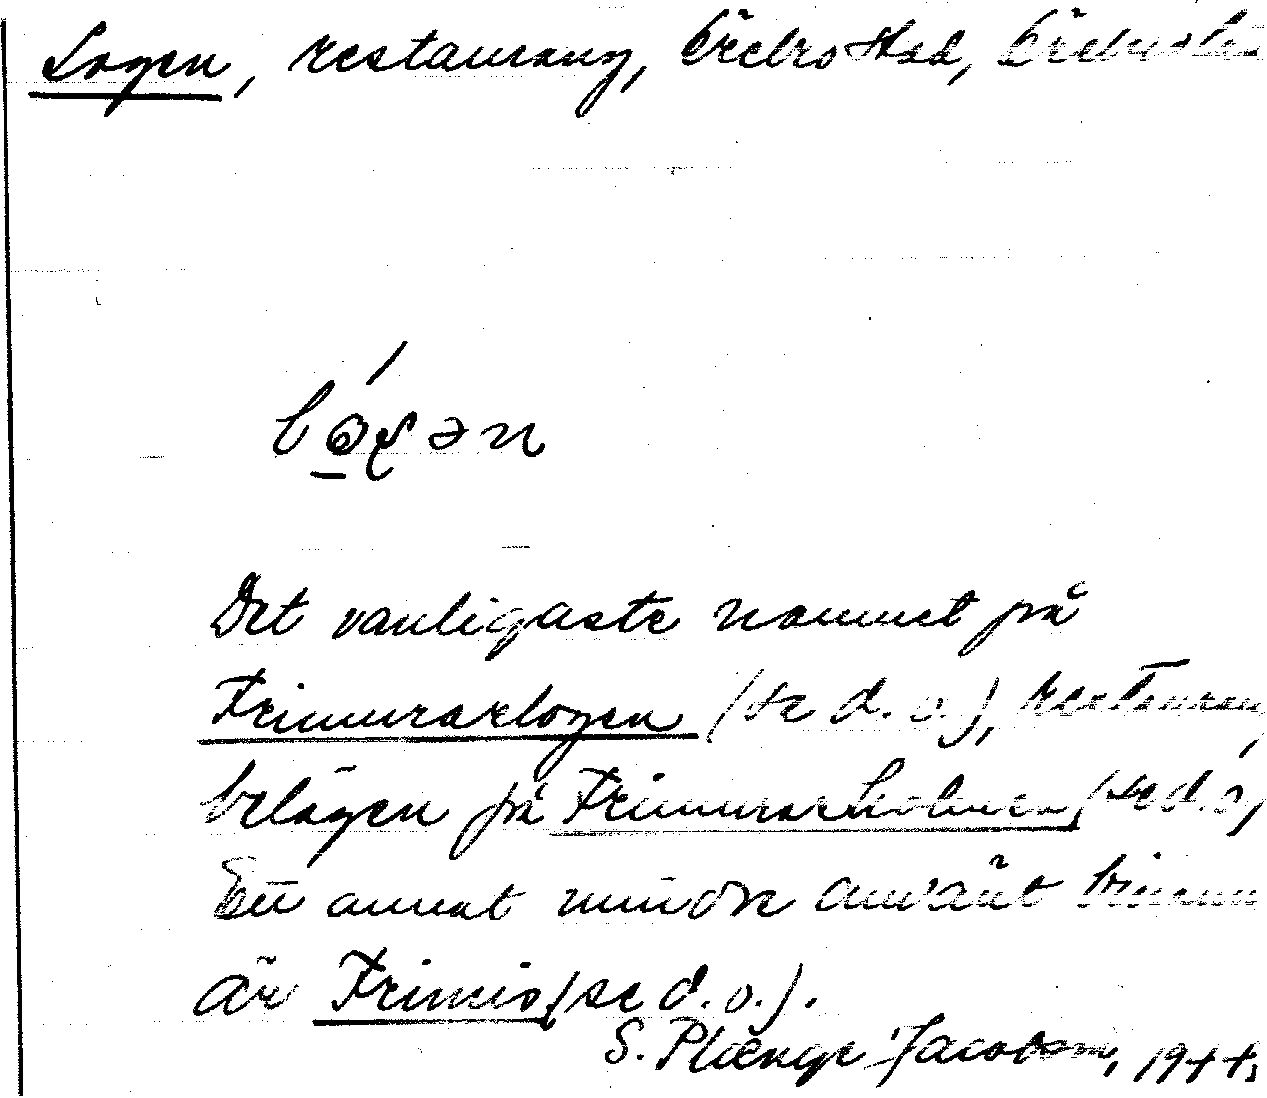 Logen, restaurang, Örebro stad, Örebro län
Det vanligaste namnet på
Frimurarlogen (se d. o.), restaurang
belägen på Frimurarholmen (se d. o.)
Ett annat mindre använt binamn
är Frimis (se d. o.).
S. Plænge Jacobson, 1944.